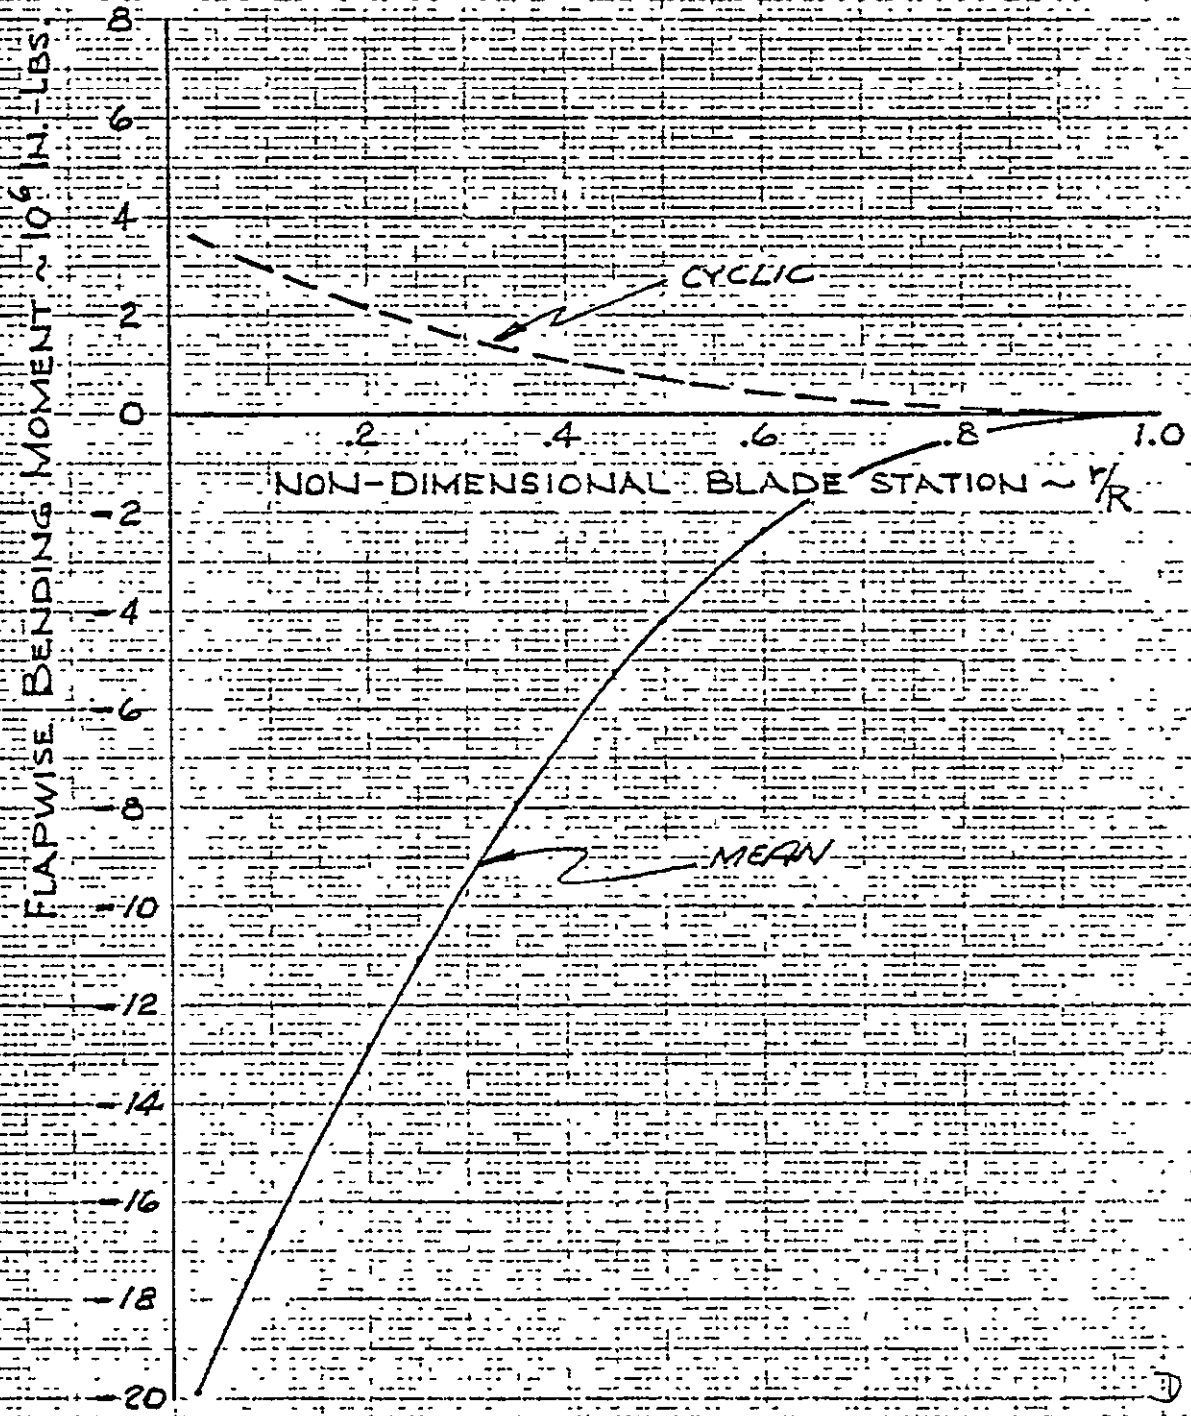 FLAPWISE BENDING MOMENT ~ 10⁶ IN.-LBS.
8
6
4
2
0
-2
-4
-6
-8
-10
-12
-14
-16
-18
-20
CYCLIC
.2 .4 .6 .8 1.0
NON-DIMENSIONAL BLADE STATION ~ r/R
MEAN